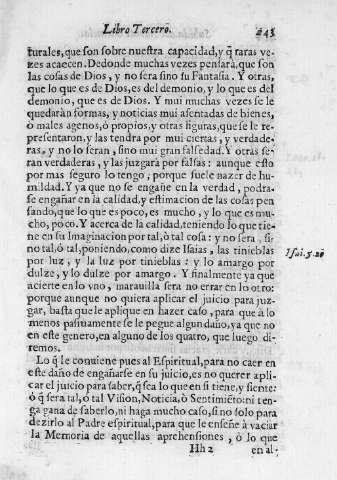 Libro Tercero. 243
turales, que son sobre nuestra capacidad, y q̃ raras ve-
zes acaecen. Dedonde muchas vezes pensarà, que son
las cosas de Dios, y no serà sino su Fantasia. Y otras,
que lo que es de Dios, es del demonio, y lo que es del
demonio, que es de Dios. Y mui muchas vezes se le
quedaràn formas, y noticias mui asentadas de bienes,
ò males agenos, ò propios, y otras figuras, que se le re-
presentaron, y las tendra por mui ciertas, y verdade-
ras, y no lo seràn, sino mui gran falsedad. Y otras se-
ran verdaderas, y las juzgarà por falsas: aunque esto
por mas seguro lo tengo, porque suele nazer de hu-
mildad. Y ya que no se engañe en la verdad, podra-
se engañar en la calidad, y estimacion de las cosas pen
sando, que lo que es poco, es mucho, y lo que es mu-
cho, poco. Y acerca de la calidad, teniendo lo que tie-
ne en su Imaginacion por tal, ò tal cosa: y no serà, si-
no tal, ò tal, poniendo, como dize Isaias, las tinieblas
por luz, y la luz por tinieblas: y lo amargo por
dulze, y lo dulze por amargo. Y finalmente ya que
acierte en lo vno, maravilla serà no errar en lo otro:
porque aunque no quiera aplicar el juicio para juz-
gar, basta que le aplique en hazer caso, para que à lo
menos pasiuamente se le pegue algun daño, ya que no
en este genero, en alguno de los quatro, que luego di-
remos.
Isai. 5. 20
Lo q̃ le conuiene pues al Espiritual, para no caer en
este daño de engañarse en su juicio, es no querer apli-
car el juicio para saber, q̃ sea lo que en si tiene, y siente:
ò q̃ serà tal, ò tal Vision, Noticia, ò Sentimiẽto: ni ten-
ga gana de saberlo, ni haga mucho caso, si no solo para
dezirlo al Padre espiritual, para que le enseñe à vaciar
la Memoria de aquellas aprehensiones, ò lo que
Hh 2 en al-